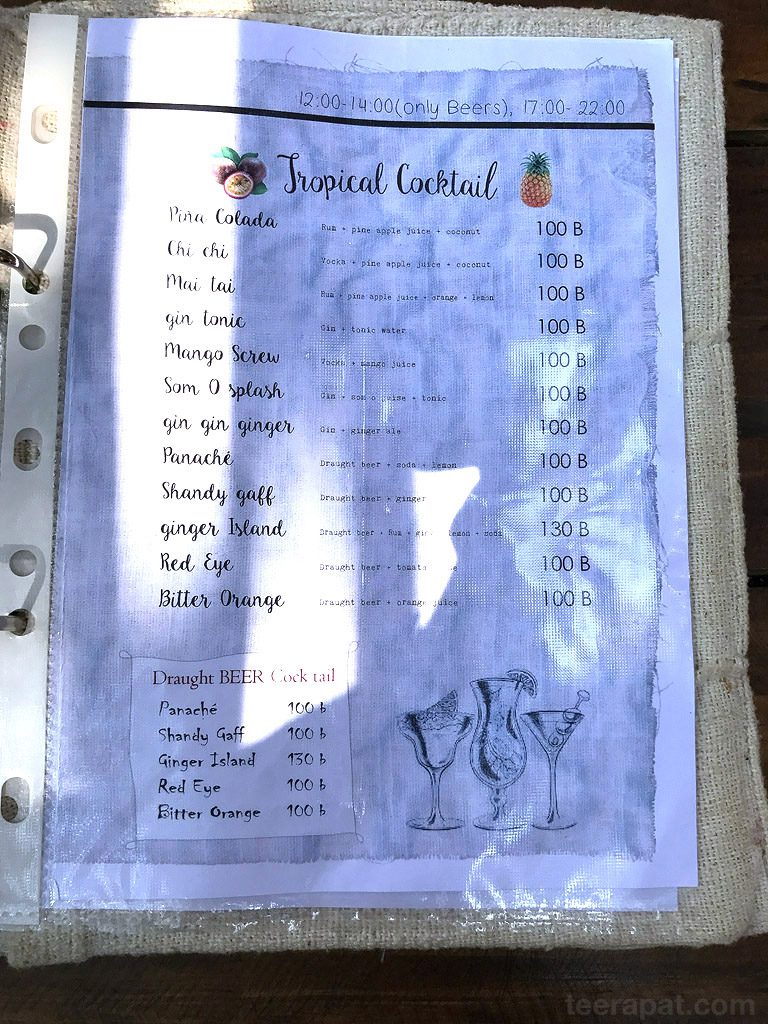 12:00-14:00(only Beers), 17:00- 22:00
Tropical Cocktail
Piña Colada Rum + pine apple juice + coconut 100 B
Chi chi Vocka + pine apple juice + coconut 100 B
Mai tai Rum + pine apple juice + orange + lemon 100 B
gin tonic Gin + tonic water 100 B
Mango Screw Vocka + mango juice 100 B
Som O splash Gin + som o juise + tonic 100 B
gin gin ginger Gin + ginger ale 100 B
Panaché Draught beer + soda + lemon 100 B
Shandy gaff Draught beer + ginger 100 B
ginger Island Draught beer + Rum + lemon + soda 130 B
Red Eye Draught beer + 100 B
Bitter Orange Draught beer + orange juice 100 B
Draught BEER Cock tail
Panaché 100 ƀ
Shandy Gaff 100 ƀ
Ginger Island 130 ƀ
Red Eye 100 ƀ
Bitter Orange 100 ƀ
teerapat.com